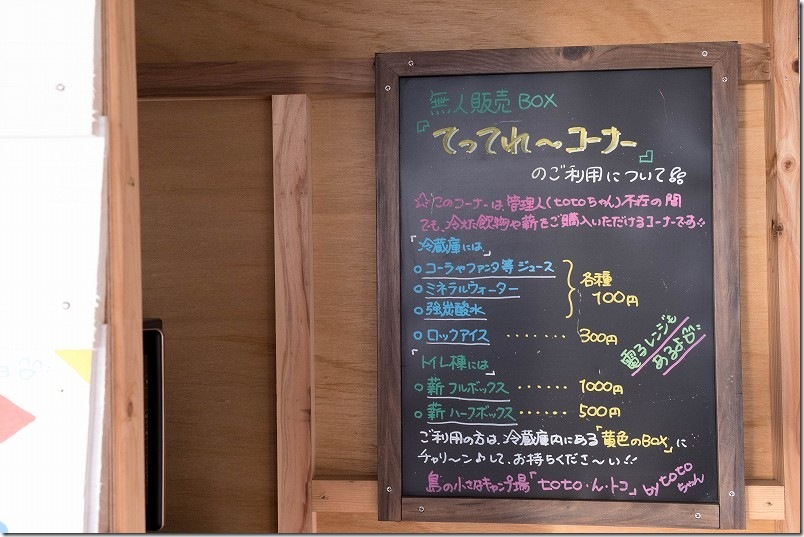 無人販売BOX
『てってれ〜コーナー』
のご利用について
☆このコーナーは、管理人(totoちゃん)不在の間
でも、冷えた飲物や薪をご購入いただけるコーナーです!!
「冷蔵庫には」
○コーラやファンタ等ジュース
○ミネラルウォーター
○強炭酸水
各種
100円
○ロックアイス ・・・・・・・ 300円
電子レンジも
あるよ
「トイレ棟には」
○薪 フルボックス ・・・・・・ 1000円
○薪 ハーフボックス ・・・・・・ 500円
ご利用の方は、冷蔵庫内にある「黄色のBOX」に
チャリ〜ン♪して、お持ちくださ〜い!!
島の小さなキャンプ場「toto・ん・トコ」 by totoちゃん